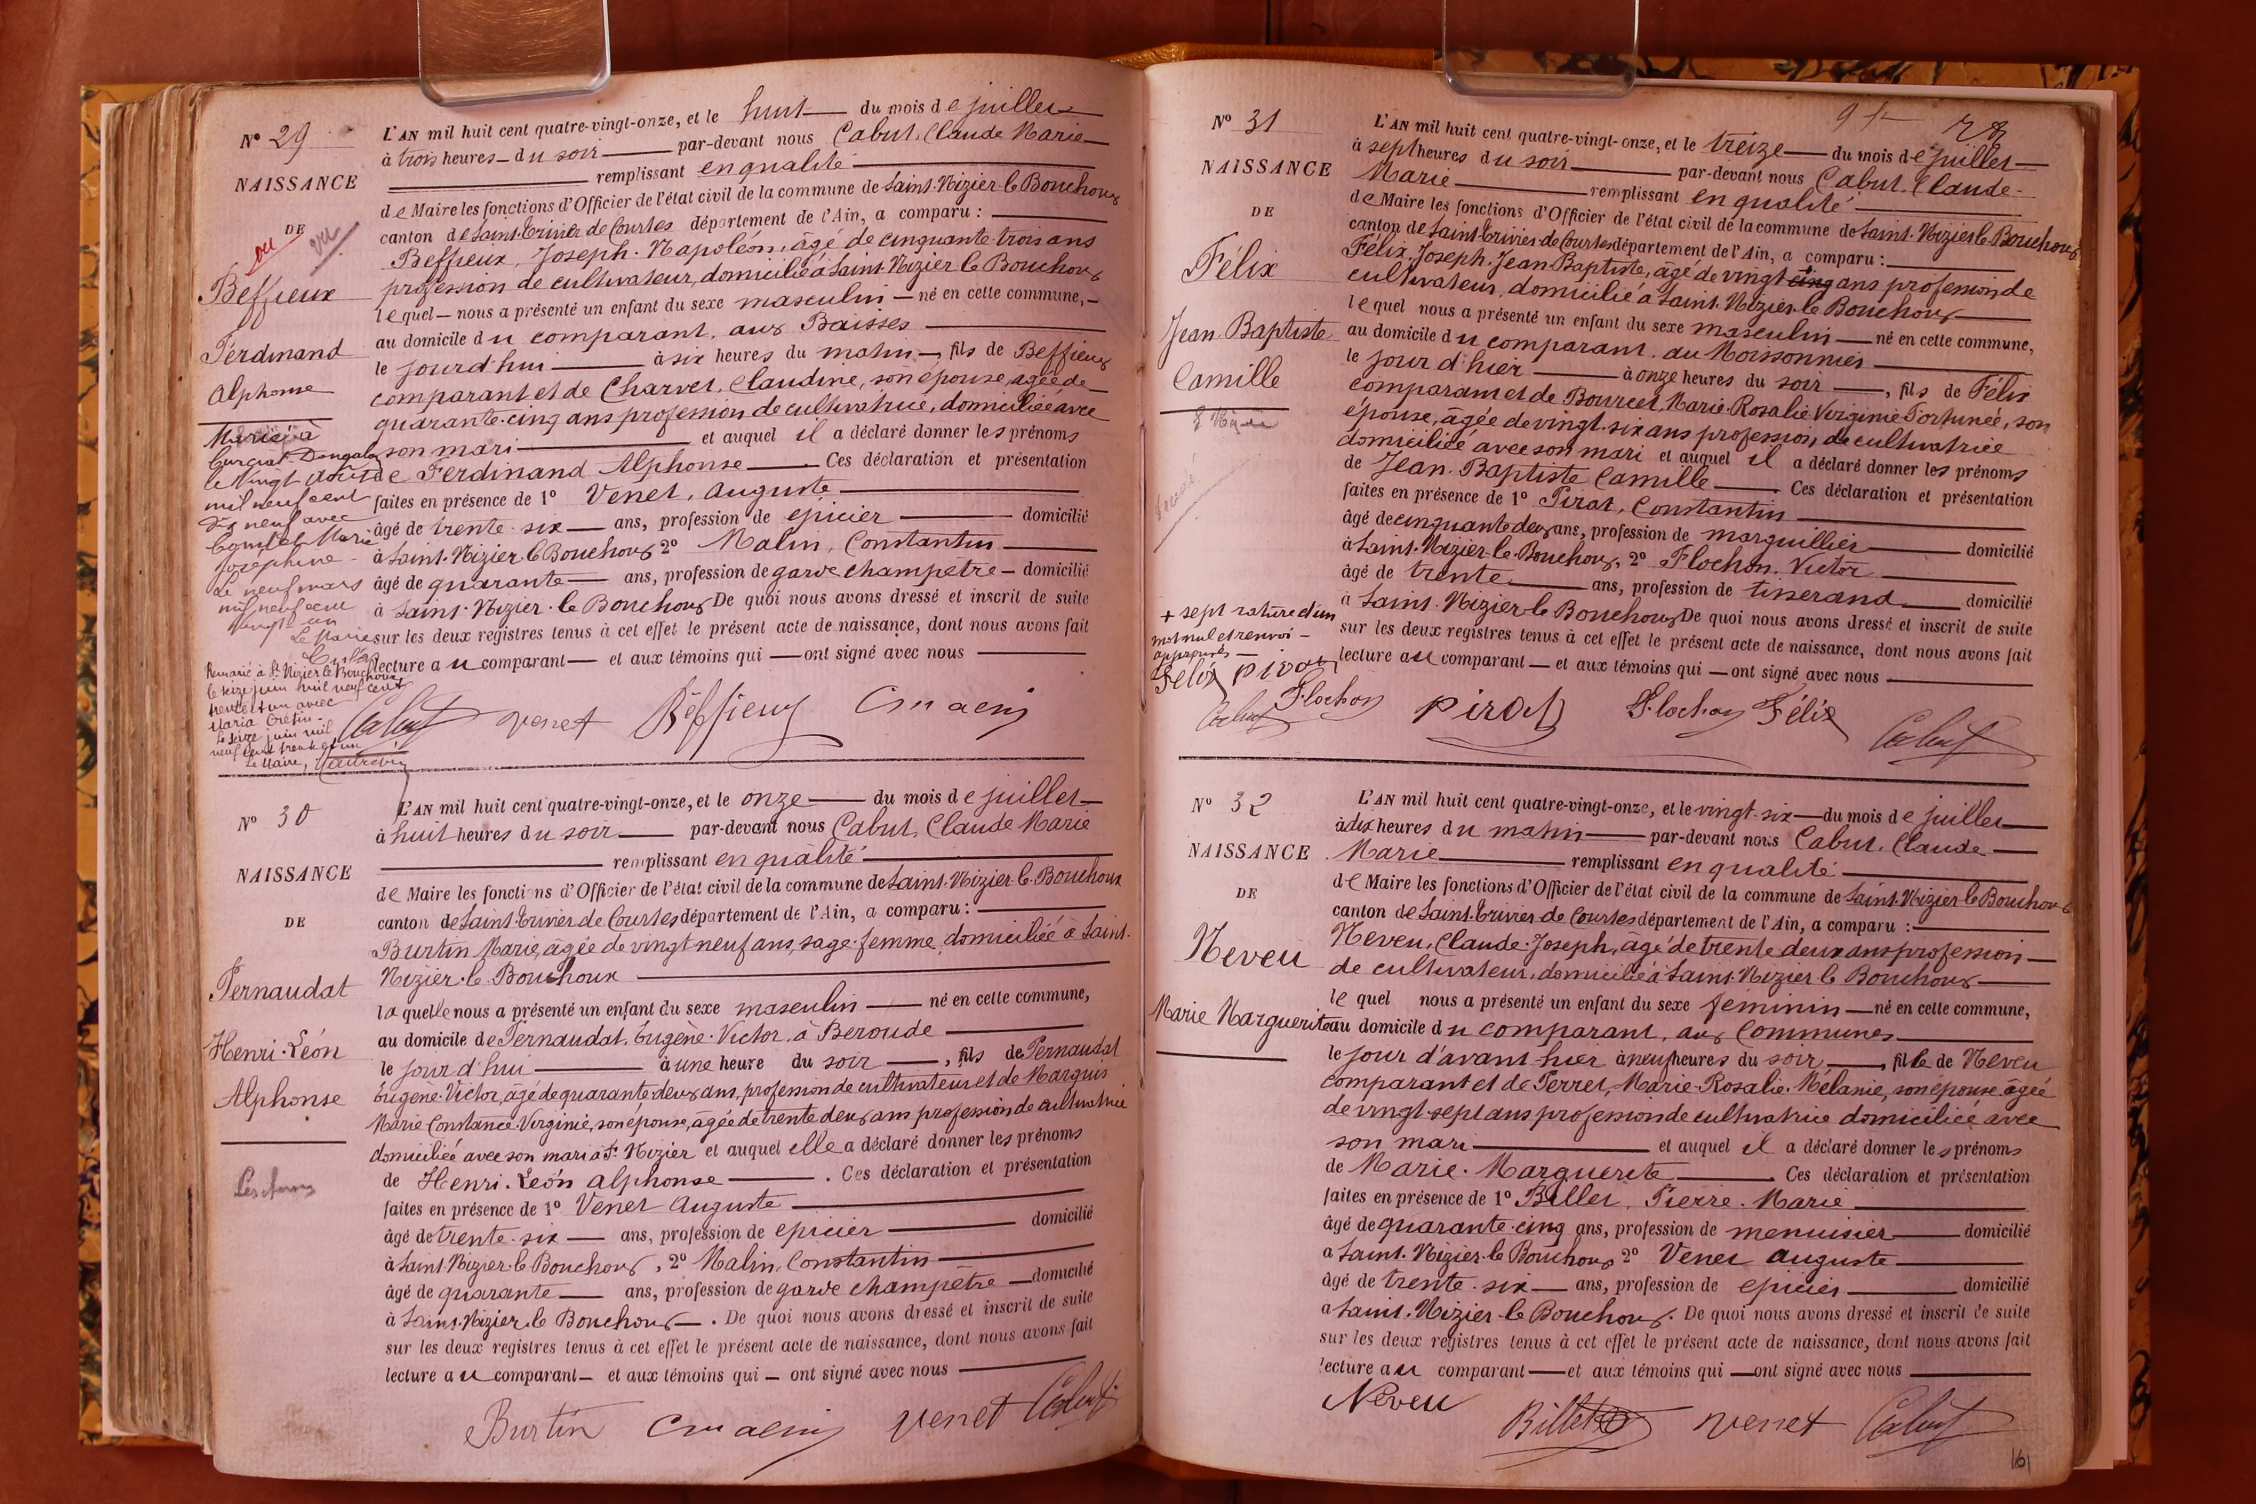 N° 29
NAISSANCE
DE
vu
vu
Beffieux
Ferdinand
Alphonse
Marié à
Curciat-Dongalon
le vingt août
mil neuf cent
dix neuf avec
Marie
Joséphine
Le neuf mars
mil neuf cent
vingt un
Le Maire
Remarié à St Nizier le Bouchoux
le seize juin mil neuf cent
trente et un avec
Maria Crétin
Le seize juin mil
neuf cent trente et un
Le Maire,
L'AN mil huit cent quatre-vingt-onze, et le huit du mois de juillet
à trois heures du soir par-devant nous Cabut, Claude Marie
remplissant en qualité
de Maire les fonctions d'Officier de l'état civil de la commune de Saint-Nizier-le-Bouchoux
canton de Saint-Trivier de Courtes département de l'Ain, a comparu :
Beffieux, Joseph-Napoléon, âgé de cinquante-trois ans
profession de cultivateur, domicilié à Saint-Nizier le Bouchoux
lequel nous a présenté un enfant du sexe masculin né en cette commune,
au domicile du comparant, aux Baisses
le jourd'hui à six heures du matin, fils de Beffieux
comparant et de Charvet, Claudine, son épouse, âgée de
quarante-cinq ans profession de cultivatrice, domiciliée avec
son mari et auquel il a déclaré donner les prénoms
de Ferdinand Alphonse Ces déclaration et présentation
faites en présence de 1° Venet, Auguste
âgé de trente-six ans, profession de épicier domicilié
à Saint-Nizier-le-Bouchoux 2° Malin, Constantin
âgé de quarante ans, profession de garde champêtre domicilié
à Saint-Nizier-le-Bouchoux De quoi nous avons dressé et inscrit de suite
sur les deux registres tenus à cet effet le présent acte de naissance, dont nous avons fait
lecture au comparant et aux témoins qui ont signé avec nous
Cabut Venet Beffieux C Malin
N° 30
NAISSANCE
DE
Pernaudat
Henri-Léon
Alphonse
L'AN mil huit cent quatre-vingt-onze, et le onze du mois de juillet
à huit heures du soir par-devant nous Cabut, Claude Marie
remplissant en qualité
de Maire les fonctions d'Officier de l'état civil de la commune de Saint-Nizier-le-Bouchoux
canton de Saint-Trivier de Courtes département de l'Ain, a comparu :
Burtin Marie, âgée de vingt neuf ans, sage-femme, domiciliée à Saint-
Nizier-le-Bouchoux
laquelle nous a présenté un enfant du sexe masculin né en cette commune,
au domicile de Pernaudat, Eugène-Victor, à Beroude
le jourd'hui à une heure du soir, fils de Pernaudat
Eugène-Victor, âgé de quarante-deux ans, profession de cultivateur et de Marguis
Marie Constance-Virginie, son épouse, âgée de trente deux ans profession de cultivatrice
domiciliée avec son mari à St Nizier et auquel elle a déclaré donner les prénoms
de Henri-Léon Alphonse. Ces déclaration et présentation
faites en présence de 1° Venet Auguste
âgé de trente-six ans, profession de épicier domicilié
à Saint-Nizier-le-Bouchoux, 2° Malin, Constantin
âgé de quarante ans, profession de garde champêtre domicilié
à Saint-Nizier-le-Bouchoux. De quoi nous avons dressé et inscrit de suite
sur les deux registres tenus à cet effet le présent acte de naissance, dont nous avons fait
lecture au comparant et aux témoins qui ont signé avec nous
Burtin C Malin Venet Cabut
N° 31
NAISSANCE
DE
Félix
Jean Baptiste
Camille
+ sept rature d'un
mot nul et renvoi
approuvés
Félix Pirat
Cabut Flochon
L'AN mil huit cent quatre-vingt-onze, et le treize du mois de juillet
à sept heures du soir par-devant nous Cabut, Claude-
Marie remplissant en qualité
de Maire les fonctions d'Officier de l'état civil de la commune de Saint-Nizier le Bouchoux
canton de Saint-Trivier de Courtes département de l'Ain, a comparu :
Félix, Joseph-Jean-Baptiste, âgé de vingt cinq ans profession de
cultivateur, domicilié à Saint-Nizier-le-Bouchoux
lequel nous a présenté un enfant du sexe masculin né en cette commune,
au domicile du comparant, au Moissonnier
le jour d'hier à onze heures du soir, fils de Félix
comparant et de Bourcet, Marie-Rosalie-Virginie Fortunée, son
épouse, âgée de vingt-six ans profession de cultivatrice
domiciliée avec son mari et auquel il a déclaré donner les prénoms
de Jean-Baptiste Camille Ces déclaration et présentation
faites en présence de 1° Pirat, Constantin
âgé de cinquante deux ans, profession de marguillier domicilié
à Saint-Nizier-le-Bouchoux, 2° Flochon, Victor
âgé de trente ans, profession de tisserand domicilié
à Saint-Nizier-le-Bouchoux De quoi nous avons dressé et inscrit de suite
sur les deux registres tenus à cet effet le présent acte de naissance, dont nous avons fait
lecture au comparant et aux témoins qui ont signé avec nous
Pirat Flochon Félix Cabut
N° 32
NAISSANCE
DE
Neveu
Marie Marguerite
L'AN mil huit cent quatre-vingt-onze, et le vingt-six du mois de juillet
à dix heures du matin par-devant nous Cabut, Claude
Marie remplissant en qualité
de Maire les fonctions d'Officier de l'état civil de la commune de Saint-Nizier le Bouchoux
canton de Saint-Trivier-de Courtes département de l'Ain, a comparu :
Neveu, Claude-Joseph, âgé de trente deux ans profession
de cultivateur, domicilié à Saint-Nizier le Bouchoux
lequel nous a présenté un enfant du sexe féminin né en cette commune,
au domicile du comparant, aux Communes
le jour d'avant-hier à neuf heures du soir, fille de Neveu
comparant et de Perret, Marie-Rosalie-Mélanie, son épouse âgée
de vingt-sept ans profession de cultivatrice domiciliée avec
son mari et auquel il a déclaré donner les prénoms
de Marie-Marguerite Ces déclaration et présentation
faites en présence de 1° Billet, Pierre-Marie
âgé de quarante-cinq ans, profession de menuisier domicilié
à Saint-Nizier-le Bouchoux 2° Venet Auguste
âgé de trente-six ans, profession de épicier domicilié
à Saint-Nizier-le Bouchoux. De quoi nous avons dressé et inscrit de suite
sur les deux registres tenus à cet effet le présent acte de naissance, dont nous avons fait
lecture au comparant et aux témoins qui ont signé avec nous
Neveu Billet Venet Cabut
161